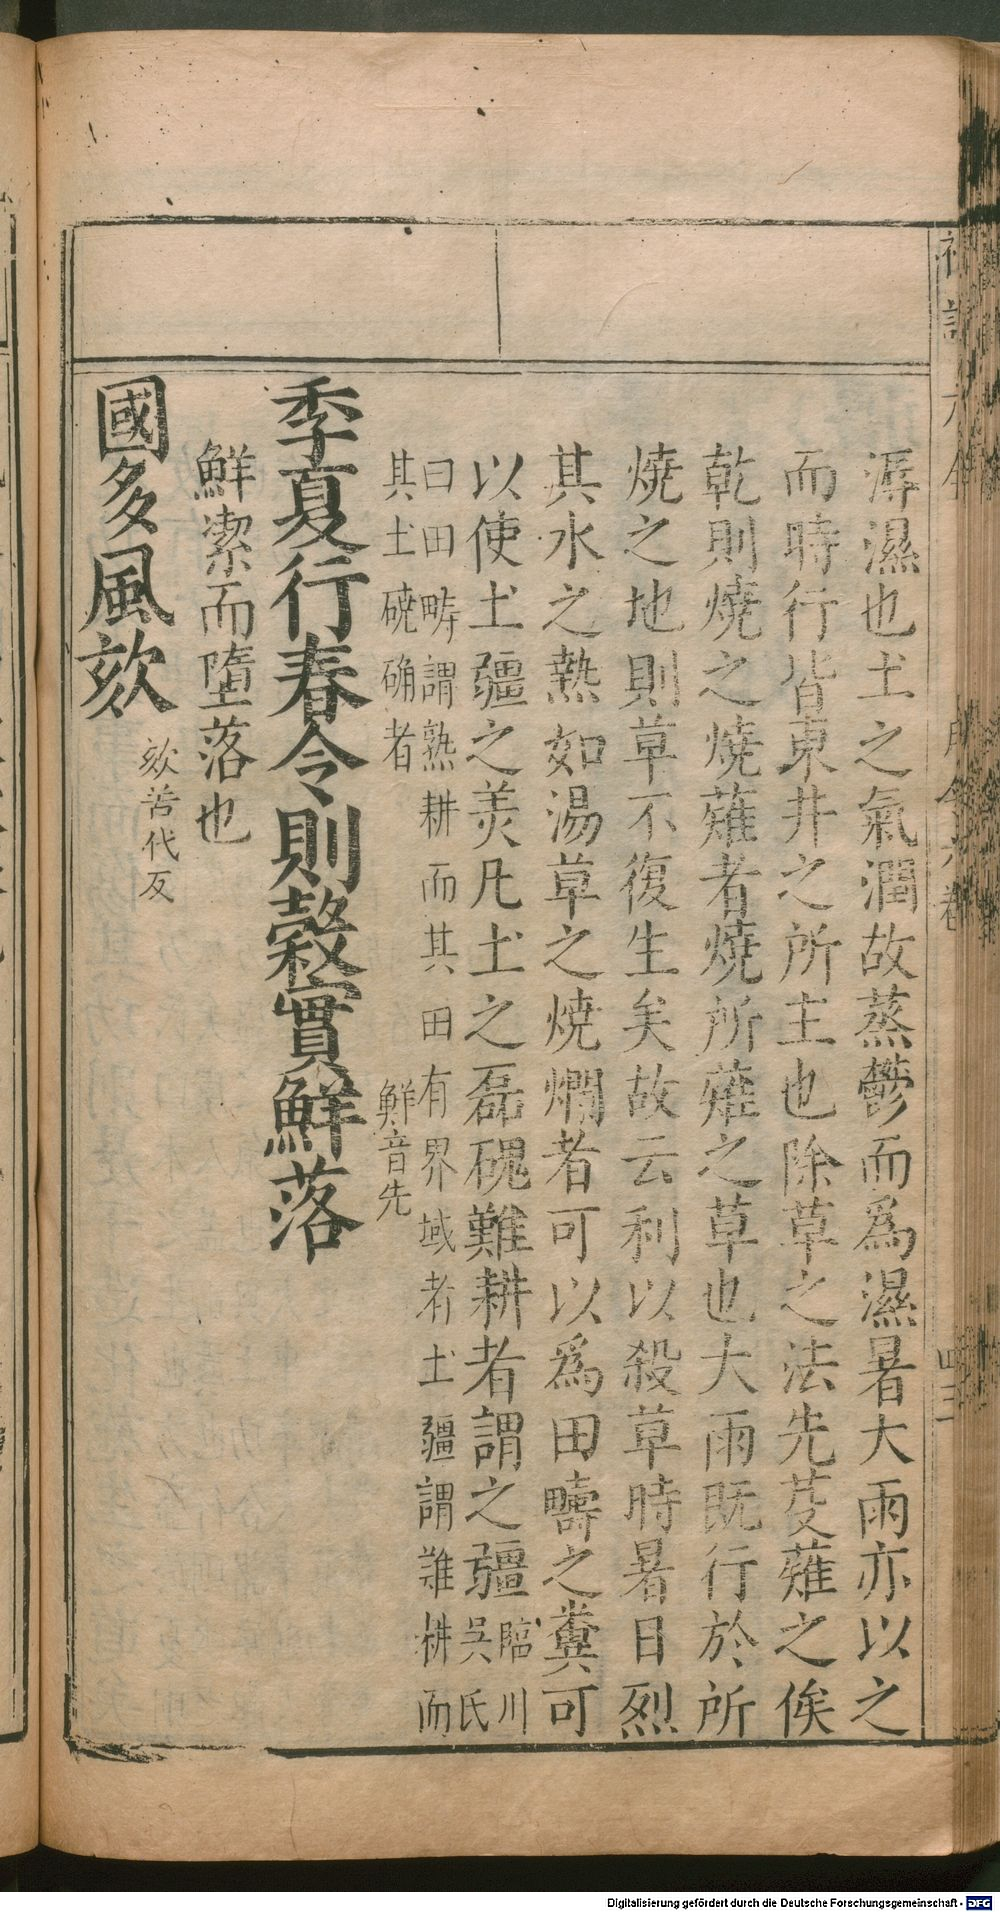 溽濕也土之氣潤故蒸鬱而爲濕暑大雨亦以之
而時行皆東井之所主也除草之法先芟薙之俟
乾則燒之燒薙者燒所薙之草也大雨既行於所
燒之地則草不復生矣故云利以殺草時暑日烈
其水之熱如湯草之燒爛者可以爲田疇之糞可
以使土疆之美凡土之磊磈難耕者謂之疆臨川吳氏
曰田畴謂熟耕而其田有界域者土疆謂難耕而
其土磽确者
鮮音先
季夏行春令則穀實鮮落
鮮潔而墮落也
國多風欬
欬苦代反
月令六卷
Digitalisierung gefördert durch die Deutsche Forschungsgemeinschaft - DFG